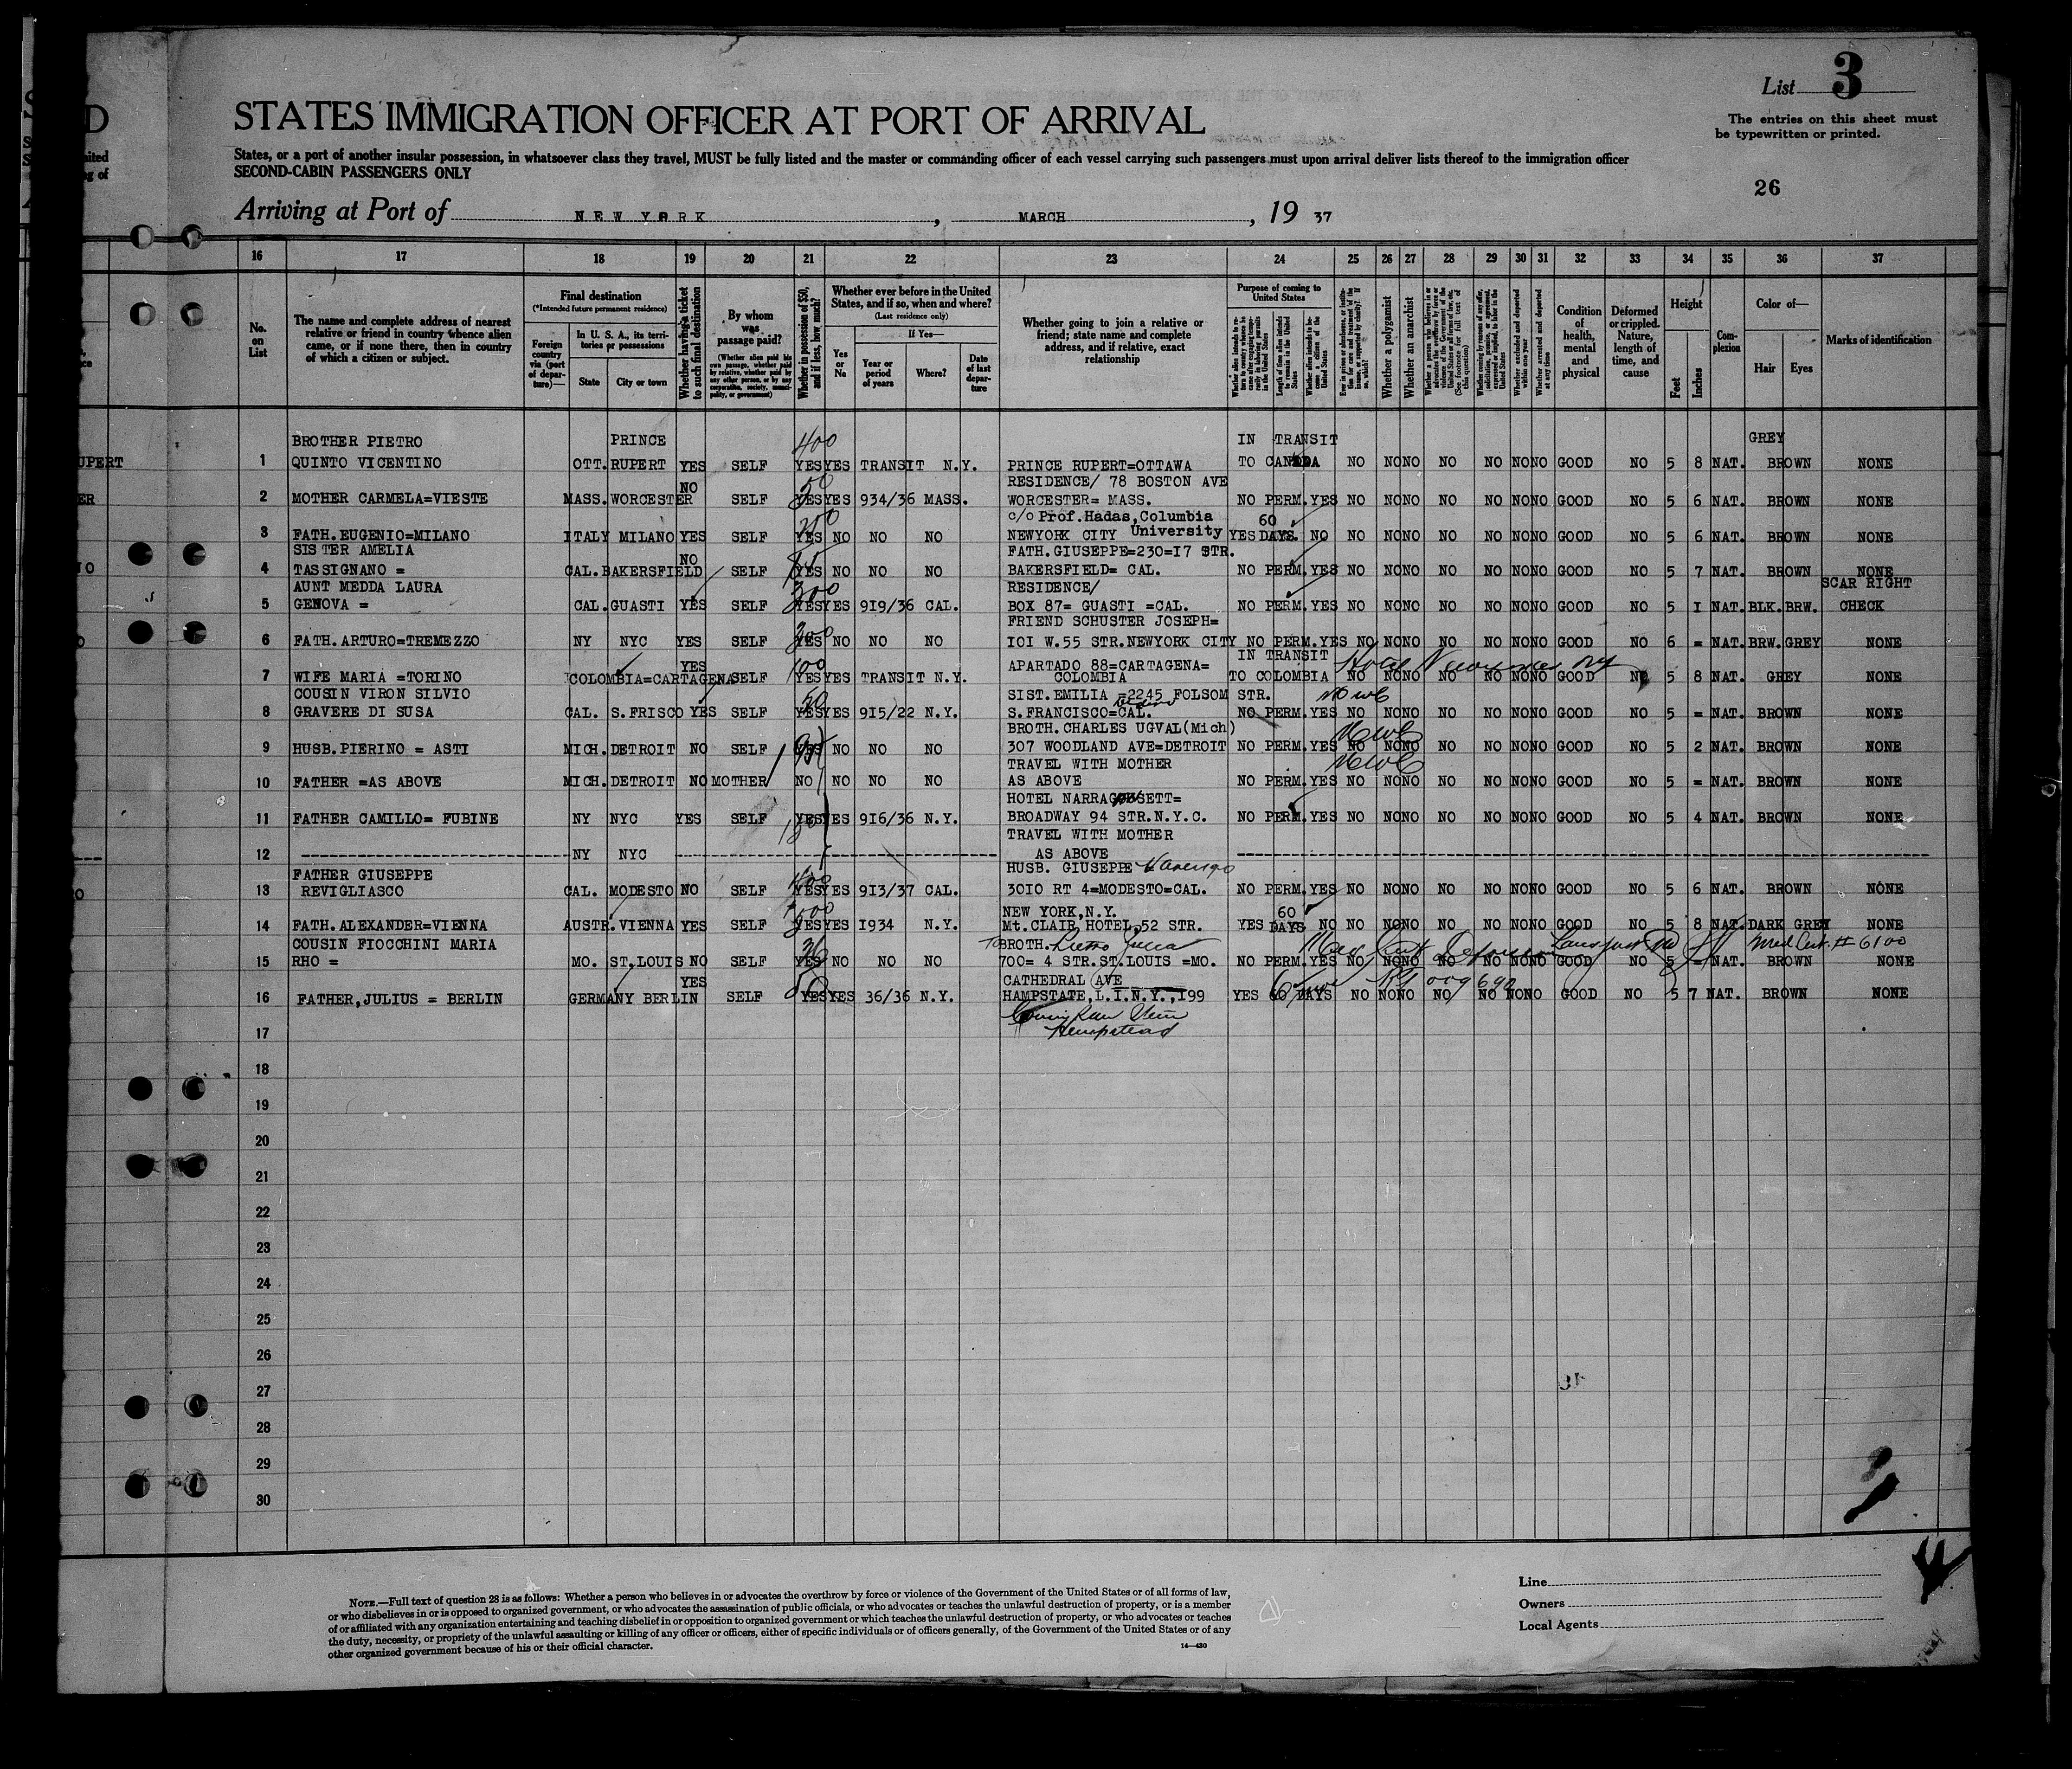 List 3
The entries on this sheet must
be typewritten or printed.
26
STATES IMMIGRATION OFFICER AT PORT OF ARRIVAL
States, or a port of another insular possession, in whatsoever class they travel, MUST be fully listed and the master or commanding officer of each vessel carrying such passengers must upon arrival deliver lists thereof to the immigration officer
SECOND-CABIN PASSENGERS ONLY
Arriving at Port of NEW YORK, MARCH, 19 37
16 17 18 19 20 21 22 23 24 25 26 27 28 29 30 31 32 33 34 35 36 37
No. on List
The name and complete address of nearest relative or friend in country whence alien came, or if none there, then in country of which a citizen or subject.
Final destination
(*Intended future permanent residence)
Foreign country via (port of departure)—
In U. S. A., its territories or possessions
State
City or town
Whether having a ticket to such final destination
By whom was passage paid?
(Whether alien paid his own passage, whether paid by relative, whether paid by any other person, or by any corporation, society, municipality, or government)
Whether in possession of $50, and if less, how much?
Whether ever before in the United States, and if so, when and where?
(Last residence only)
Yes or No
If Yes—
Year or period of years
Where?
Date of last departure
Whether going to join a relative or friend; state name and complete address, and if relative, exact relationship
Purpose of coming to United States
Whether a polygamist
Whether an anarchist
Condition of health, mental and physical
Deformed or crippled. Nature, length of time, and cause
Height
Feet
Inches
Complexion
Color of—
Hair
Eyes
Marks of identification
BROTHER PIETRO PRINCE 400 IN TRANSIT GREY
1 QUINTO VICENTINO OTT. RUPERT YES SELF YES YES TRANSIT N.Y. PRINCE RUPERT=OTTAWA TO CANADA NO NO NO NO NO NO NO GOOD NO 5 8 NAT. BROWN NONE
NO 50 RESIDENCE/ 78 BOSTON AVE
2 MOTHER CARMELA=VIESTE MASS. WORCESTER SELF YES YES 934/36 MASS. WORCESTER= MASS. NO PERM. YES NO NO NO NO NO NO NO GOOD NO 5 6 NAT. BROWN NONE
c/o Prof. Hadas, Columbia 60
3 FATH. EUGENIO=MILANO ITALY MILANO YES SELF YES NO NO NO NEWYORK CITY University YES DAYS. NO NO NO NO NO NO NO NO GOOD NO 5 6 NAT. BROWN NONE
SISTER AMELIA NO FATH. GIUSEPPE=230=I7 STR.
4 TASSIGNANO = CAL. BAKERSFIELD SELF YES NO NO NO BAKERSFIELD= CAL. NO PERM. YES NO NO NO NO NO NO NO GOOD NO 5 7 NAT. BROWN NONE
AUNT MEDDA LAURA 300 RESIDENCE/ SCAR RIGHT
5 GENOVA = CAL. GUASTI YES SELF YES YES 919/36 CAL. BOX 87= GUASTI =CAL. NO PERM. YES NO NO NO NO NO NO NO GOOD NO 5 I NAT. BLK. BRW. CHECK
FRIEND SCHUSTER JOSEPH=
6 FATH. ARTURO=TREMEZZO NY NYC YES SELF YES NO NO NO IOI W.55 STR. NEWYORK CITY NO PERM. YES NO NO NO NO NO NO NO GOOD NO 6 = NAT. BRW. GREY NONE
YES 100 APARTADO 88=CARTAGENA= IN TRANSIT
7 WIFE MARIA =TORINO COLOMBIA=CARTAGENA SELF YES YES TRANSIT N.Y. COLOMBIA TO COLOMBIA NO NO NO NO NO NO NO GOOD NO 5 8 NAT. GREY NONE
COUSIN VIRON SILVIO 50 SIST. EMILIA =2245 FOLSOM STR.
8 GRAVERE DI SUSA CAL. S. FRISCO YES SELF YES YES 9I5/22 N.Y. S. FRANCISCO=CAL. NO PERM. YES NO NO NO NO NO NO NO GOOD NO 5 = NAT. BROWN NONE
BROTH. CHARLES UGVAL (Mich)
9 HUSB. PIERINO = ASTI MICH. DETROIT NO SELF YES NO NO NO 307 WOODLAND AVE=DETROIT NO PERM. YES NO NO NO NO NO NO NO GOOD NO 5 2 NAT. BROWN NONE
TRAVEL WITH MOTHER
10 FATHER =AS ABOVE MICH. DETROIT NO MOTHER NO NO NO NO AS ABOVE NO PERM. YES NO NO NO NO NO NO NO GOOD NO 5 = NAT. BROWN NONE
HOTEL NARRAGANSETT=
11 FATHER CAMILLO= FUBINE NY NYC YES SELF YES YES 9I6/36 N.Y. BROADWAY 94 STR. N.Y.C. NO PERM. YES NO NO NO NO NO NO NO GOOD NO 5 4 NAT. BROWN NONE
TRAVEL WITH MOTHER
12 NY NYC AS ABOVE
FATHER GIUSEPPE HUSB. GIUSEPPE
13 REVIGLIASCO CAL. MODESTO NO SELF YES YES 9I3/37 CAL. 30IO RT 4=MODESTO=CAL. NO PERM. YES NO NO NO NO NO NO NO GOOD NO 5 6 NAT. BROWN NONE
NEW YORK, N.Y. 60
14 FATH. ALEXANDER=VIENNA AUSTR. VIENNA YES SELF YES YES I934 N.Y. Mt. CLAIR HOTEL, 52 STR. YES DAYS NO NO NO NO NO NO NO NO GOOD NO 5 8 NAT. DARK GREY NONE
COUSIN FIOCCHINI MARIA BROTH. Pietro Med Cert. # 6100
15 RHO = MO. ST. LOUIS NO SELF YES NO NO NO 700= 4 STR. ST. LOUIS =MO. NO PERM. YES NO NO NO NO NO NO NO GOOD NO 5 NAT. BROWN NONE
YES 50 CATHEDRAL AVE
16 FATHER, JULIUS = BERLIN GERMANY BERLIN SELF YES YES 36/36 N.Y. HAMPSTATE, L.I.N.Y., I99 YES 60 DAYS NO NO NO NO NO NO NO GOOD NO 5 7 NAT. BROWN NONE
Hempstead
17
18
19
20
21
22
23
24
25
26
27
28
29
30
NOTE.—Full text of question 28 is as follows: Whether a person who believes in or advocates the overthrow by force or violence of the Government of the United States or of all forms of law,
or who disbelieves in or is opposed to organized government, or who advocates the assassination of public officials, or who advocates or teaches the unlawful destruction of property, or is a member
of or affiliated with any organization entertaining and teaching disbelief in or opposition to organized government or which teaches the unlawful destruction of property, or who advocates or teaches
the duty, necessity, or propriety of the unlawful assaulting or killing of any officer or officers, either of specific individuals or of officers generally, of the Government of the United States or of any
other organized government because of his or their official character.
14—430
Line
Owners
Local Agents